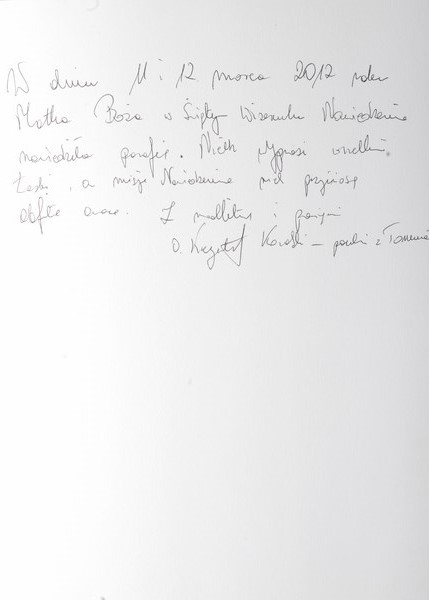 W dniu 11 i 12 marca 2012 roku
Matka Boża w Świętym Wizerunku Nawiedzenia
nawiedziła parafię. Niech wyprosi wielkie
łaski, a misje Nawiedzenia niech przyniosą
obfite owoce. Z modlitwą i
O. Krzysztof – paulin z